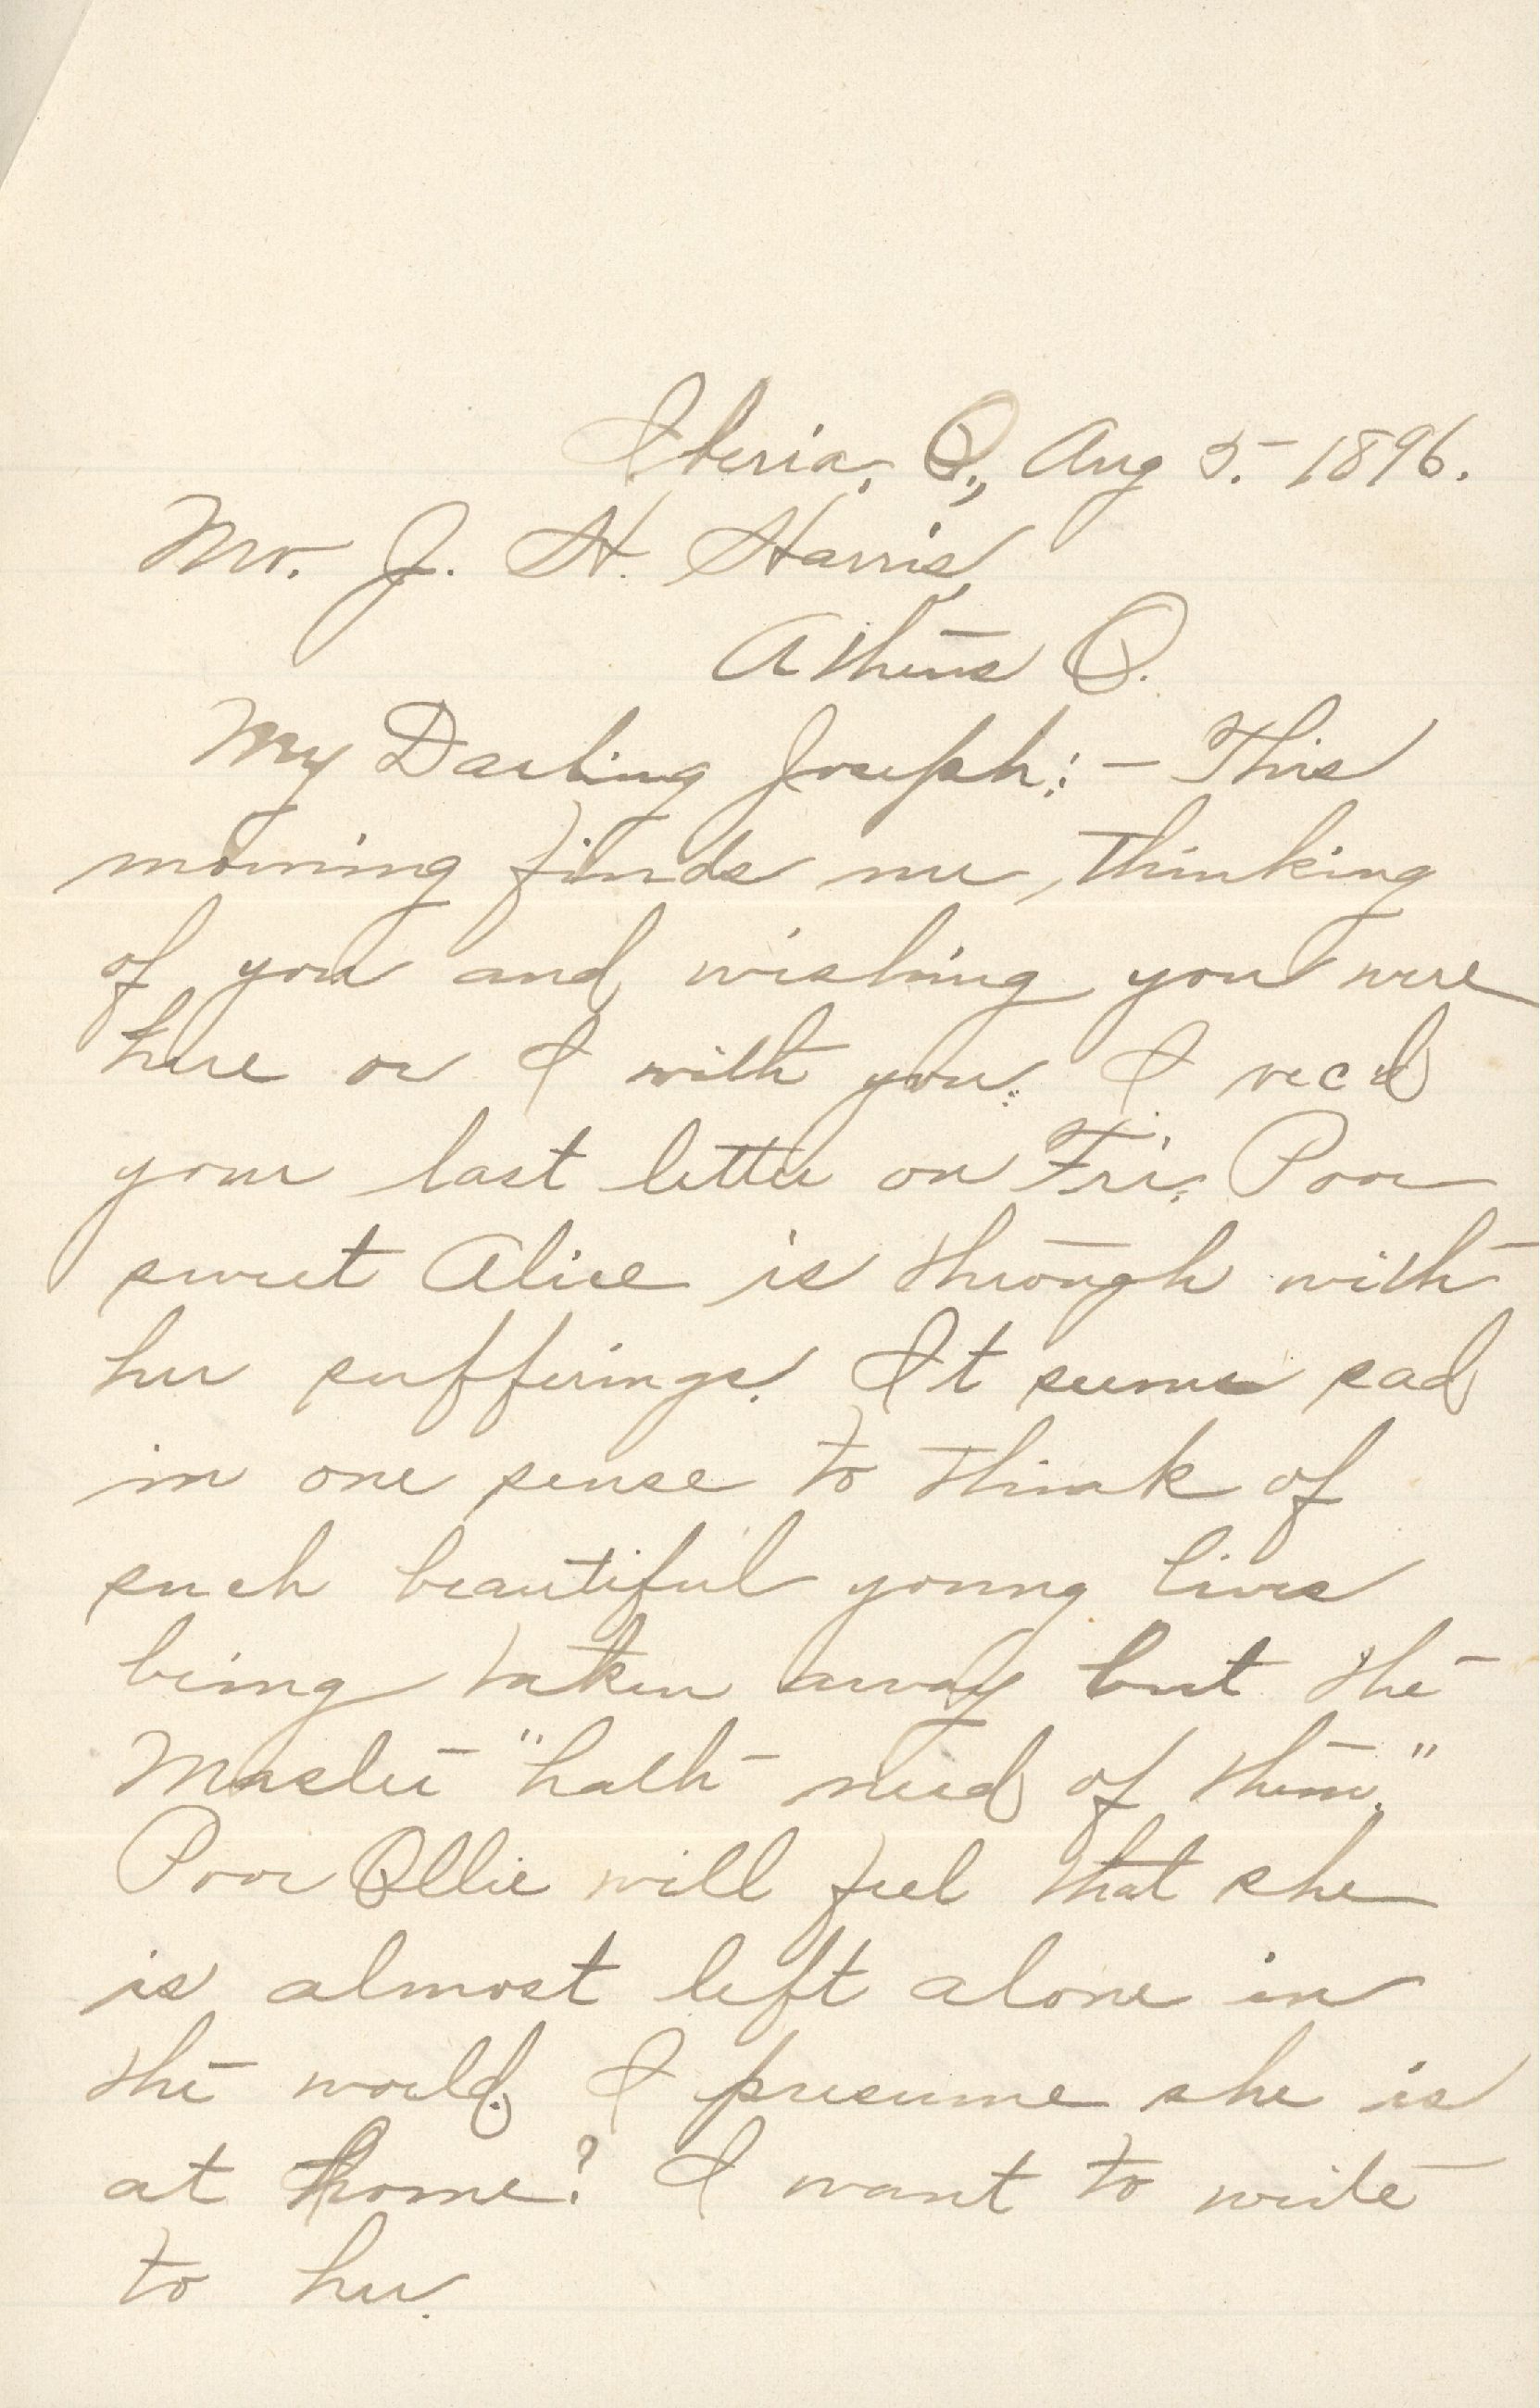 Iberia, O., Aug 5.- 1896.
Mr. J. H. Harris,
Athens O.
My Darling Joseph:- This
morning finds me, thinking
of you and wishing you were
here or I with you. I rec'd
your last letter on Fri. Poor
sweet Alice is through with
her sufferings. It seems sad
in one sense to think of
such beautiful young lives
being taken away but the
Master "hath need of them."
Poor Ollie will feel that she
is almost left alone in
the world. I presume she is
at home? I want to write
to her.